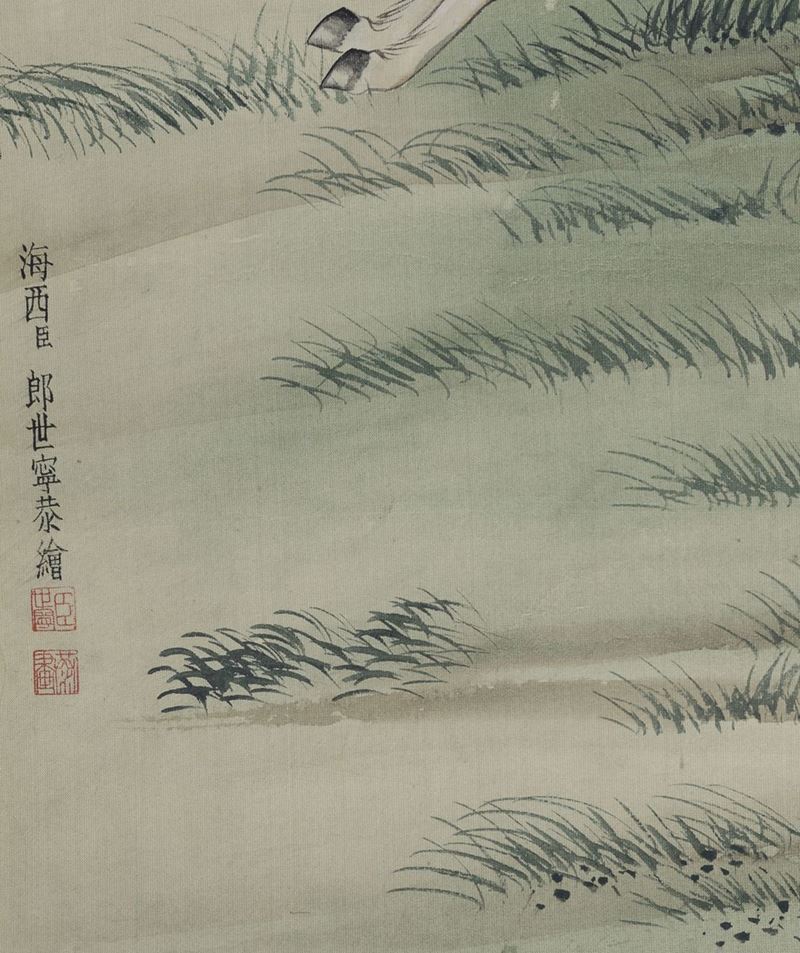 海西臣郎世寧恭繪
臣世寧
恭畫